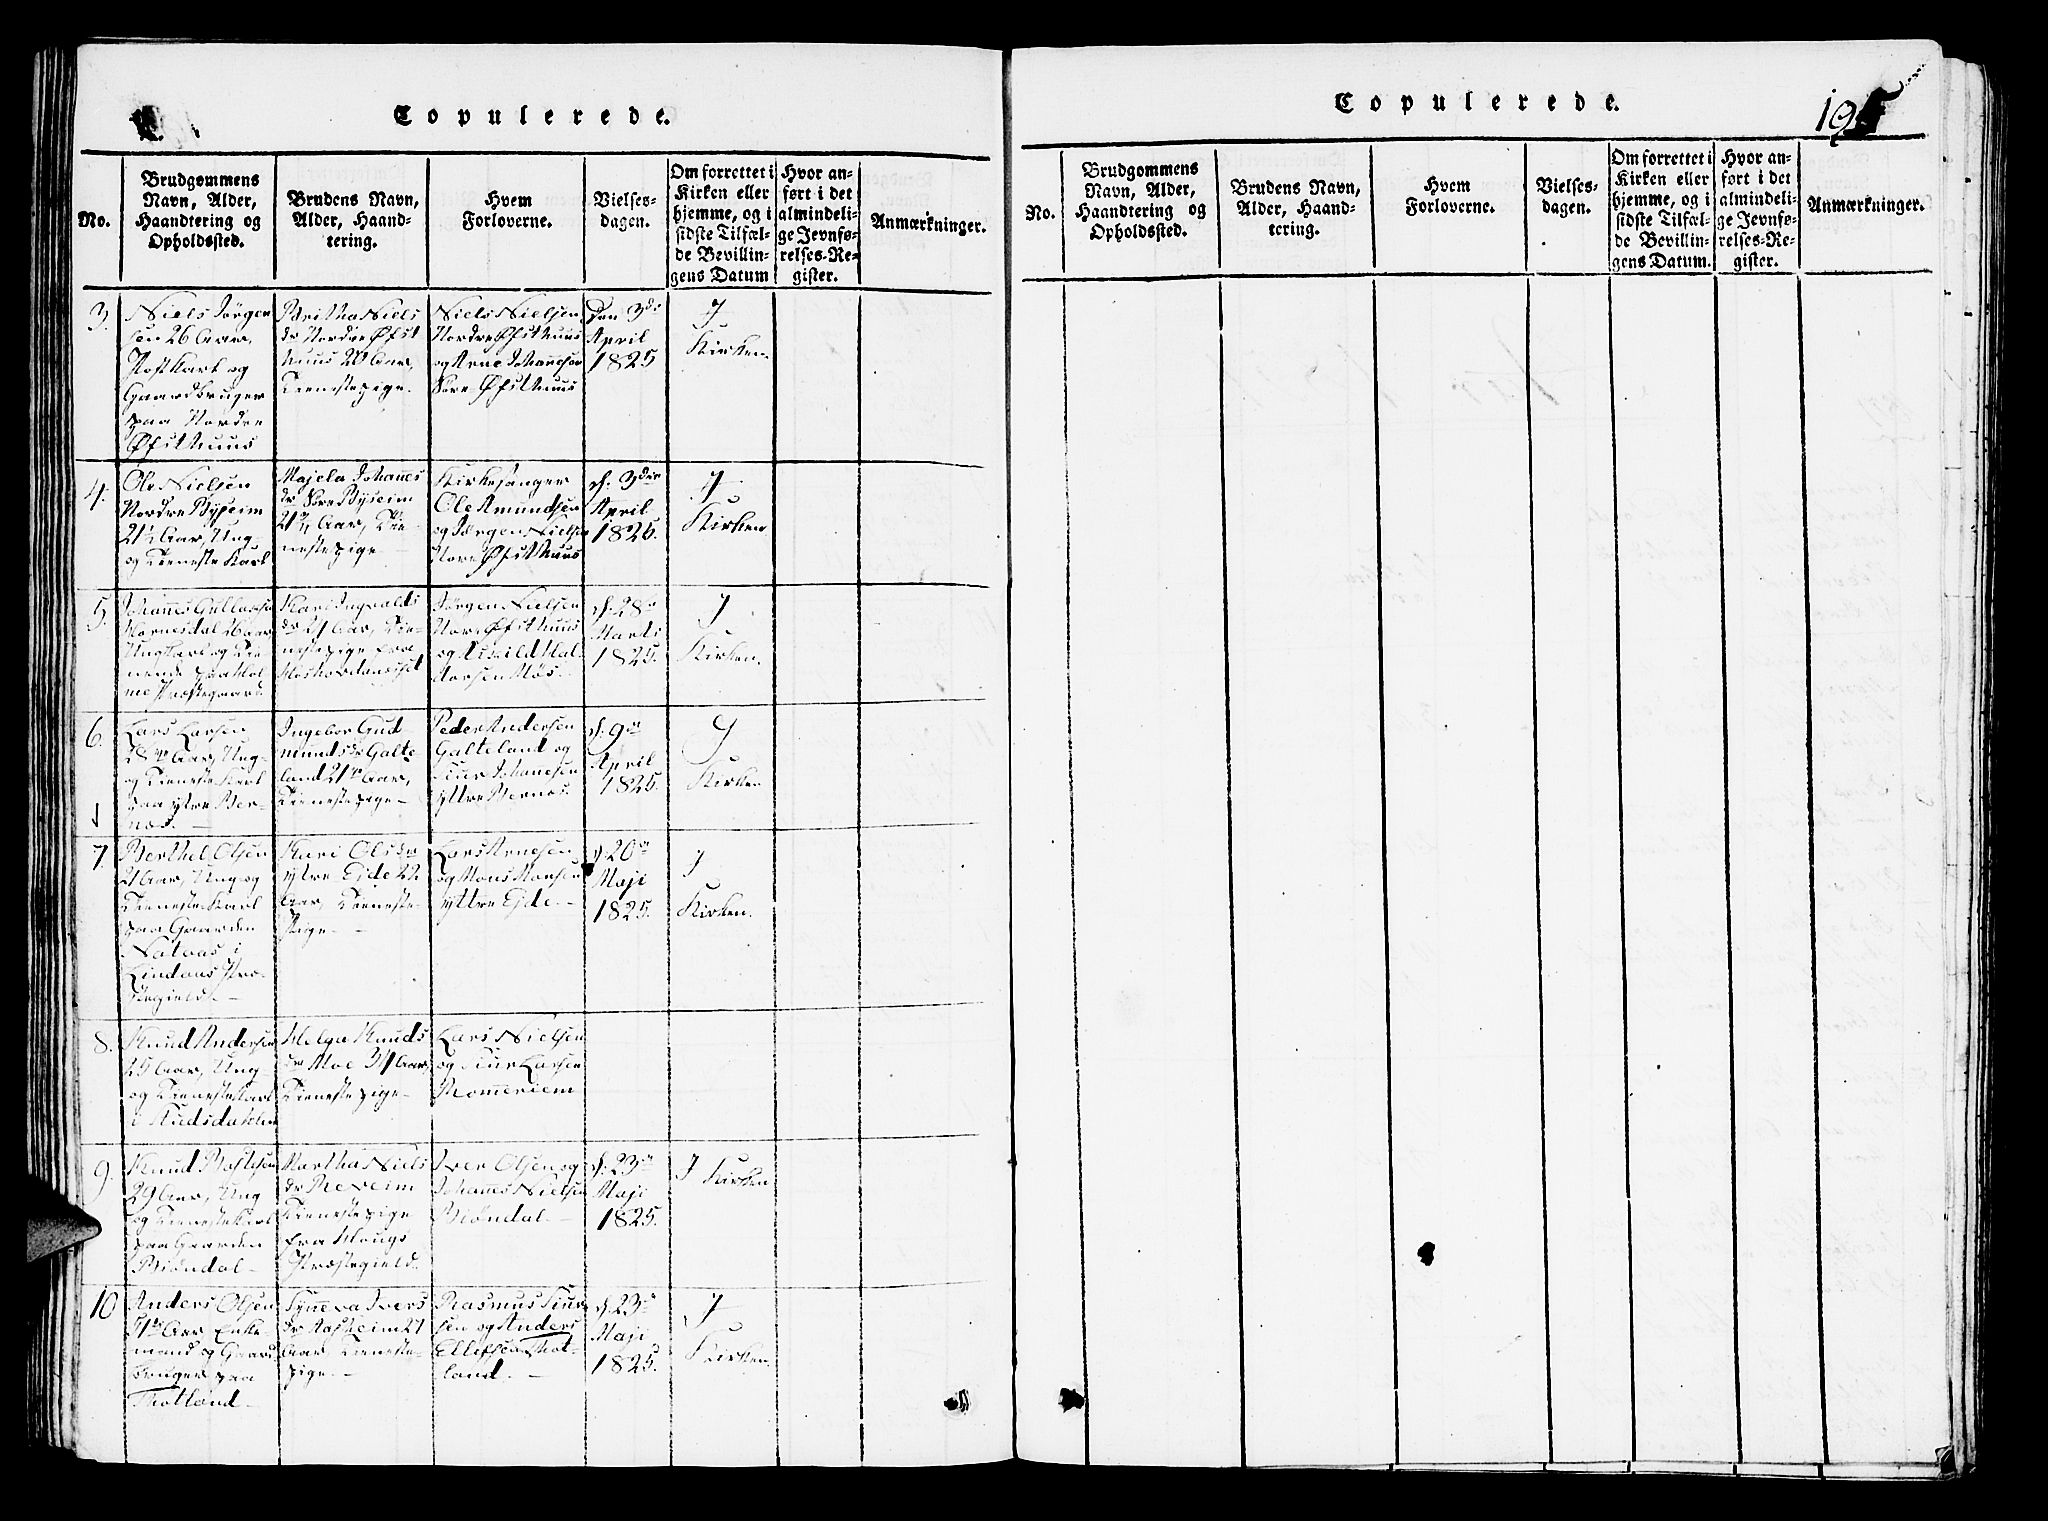 Copulerede.
No.
Brudgommens
Navn, Alder,
Haandtering og
Opholdssted.
Brudens Navn,
Alder, Haand-
tering.
Hvem
Forloverne.
Vielses-
dagen.
Om forrettet i
Kirken eller
hjemme, og i
sidste Tilfæl-
de Bevillin-
gens Datum
Hvor an-
ført i det
almindeli-
ge Jevnfø-
relses-Re-
gister.
Anmærkninger.
3.
Niels Jørgen
sen 26 Aar,
Postkarl og
Gaardbruger
paa Nordre
Øfsthuus
Britha Niels
dr Nordre Øfst
huus 20 Aar,
Tienestepige.
Niels Nielsen
Nordre Øfsthuus
og Arne Johannesen
Nore Øfsthuus
Den 3de
April
1825
I
Kirken.
4.
Ole Nielsen
Nordre Bysheim
21½ Aar, Ung-
og Tieneste Karl
Majela Johanes
dr Nore Bysheim
Aar, Tie-
nestepige
Kirkesanger
Ole Amundsen
og Jørgen Nielsen
Nore Øfsthuus
d. 3die
April
1825.
I
Kirken
5.
Johanes
26 Aar
Ungkarl og Tie-
nende paa Hol-
me Præstegaard
Kari Ingvalds
dr 21 Aar, Tie-
nestepige fra
Jørgen Nielsen
Nor. Øfsthuus
og Hal-
vorsen
d. 28de
Marts
1825.
I
Kirken.
6.
Lars Larsen
Aar, Ung-
og Tieneste Karl
paa ytre Ber-
næs. -
Ingebor Gud
munds dr Galte
land 21 Aar,
Tienestepige -
Peder Andersen
Galteland og
Siur Johanesen
yttre Bernes.
d. 9de
April
1825.
I
Kirken
7.
Berthel Olsen
21 Aar, Ung og
Tieneste Karl
paa Gaarden
Natvas i
Lindaas Præ-
stegield. -
Kari Ols dr
ytre Eide 22
Aar, Tieneste-
Pige. -
Lars Arnesen
og Mons Monsen
yttre Eide. -
d. 20de
Maji
1825.
I
Kirken.
8.
Knud Andersen
25 Aar, Ung
og Tieneste Karl
i
Helga Knuds
dr Moe 34 Aar,
Tienestepige -
Lars Nielsen
og Siur Larsen
Romeriem
9.
Knud
29 Aar, Ung
og Tieneste Karl
paa Gaarden
Biöndal -
Martha Niels
dr Reveim
Tienestepige
fra Hougs
Præstegield.
Iver Olsen og
Johannes Nielsen
Biöndal. -
d. 23de
Maji
1825.
I Kirken
10
Anders Olsen
Aar Enke
mand og Gaard
bruger paa
Thotland -
Synneva Ivers
dr Aasheim 21
Aar Tieneste-
pige. -
Rasmus Siur
sen og Anders
Ellefsen Thot-
land. -
d. 23de
Maji
1825.
I
Kirken.
Copulerede.
195
No.
Brudgommens
Navn, Alder,
Haandtering og
Opholdssted.
Brudens Navn,
Alder, Haand-
tering.
Hvem
Forloverne.
Vielses-
dagen.
Om forrettet i
Kirken eller
hjemme, og i
sidste Tilfæl-
de Bevillin-
gens Datum.
Hvor an-
ført i det
almindeli-
ge Jevnfø-
relses-Re-
gister.
Anmærkninger.